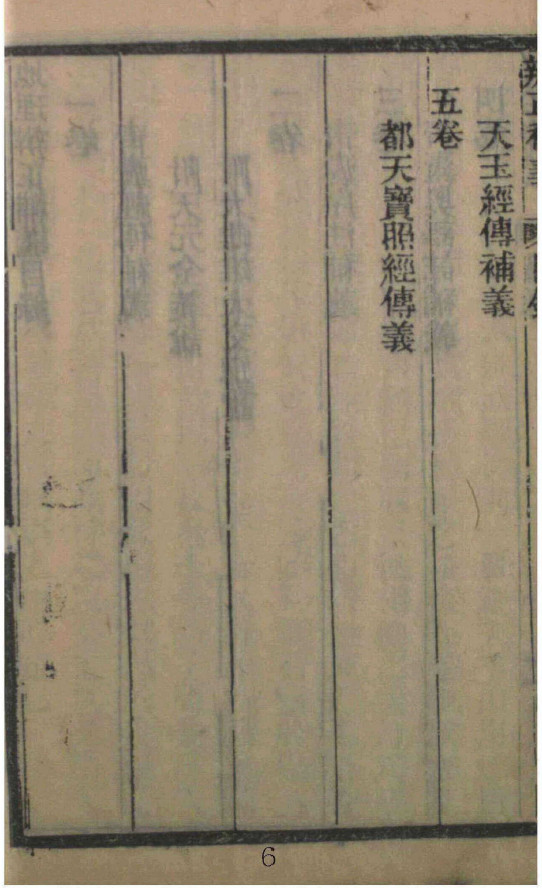 天玉經傳補義
五卷
都天寶照經傳義
6